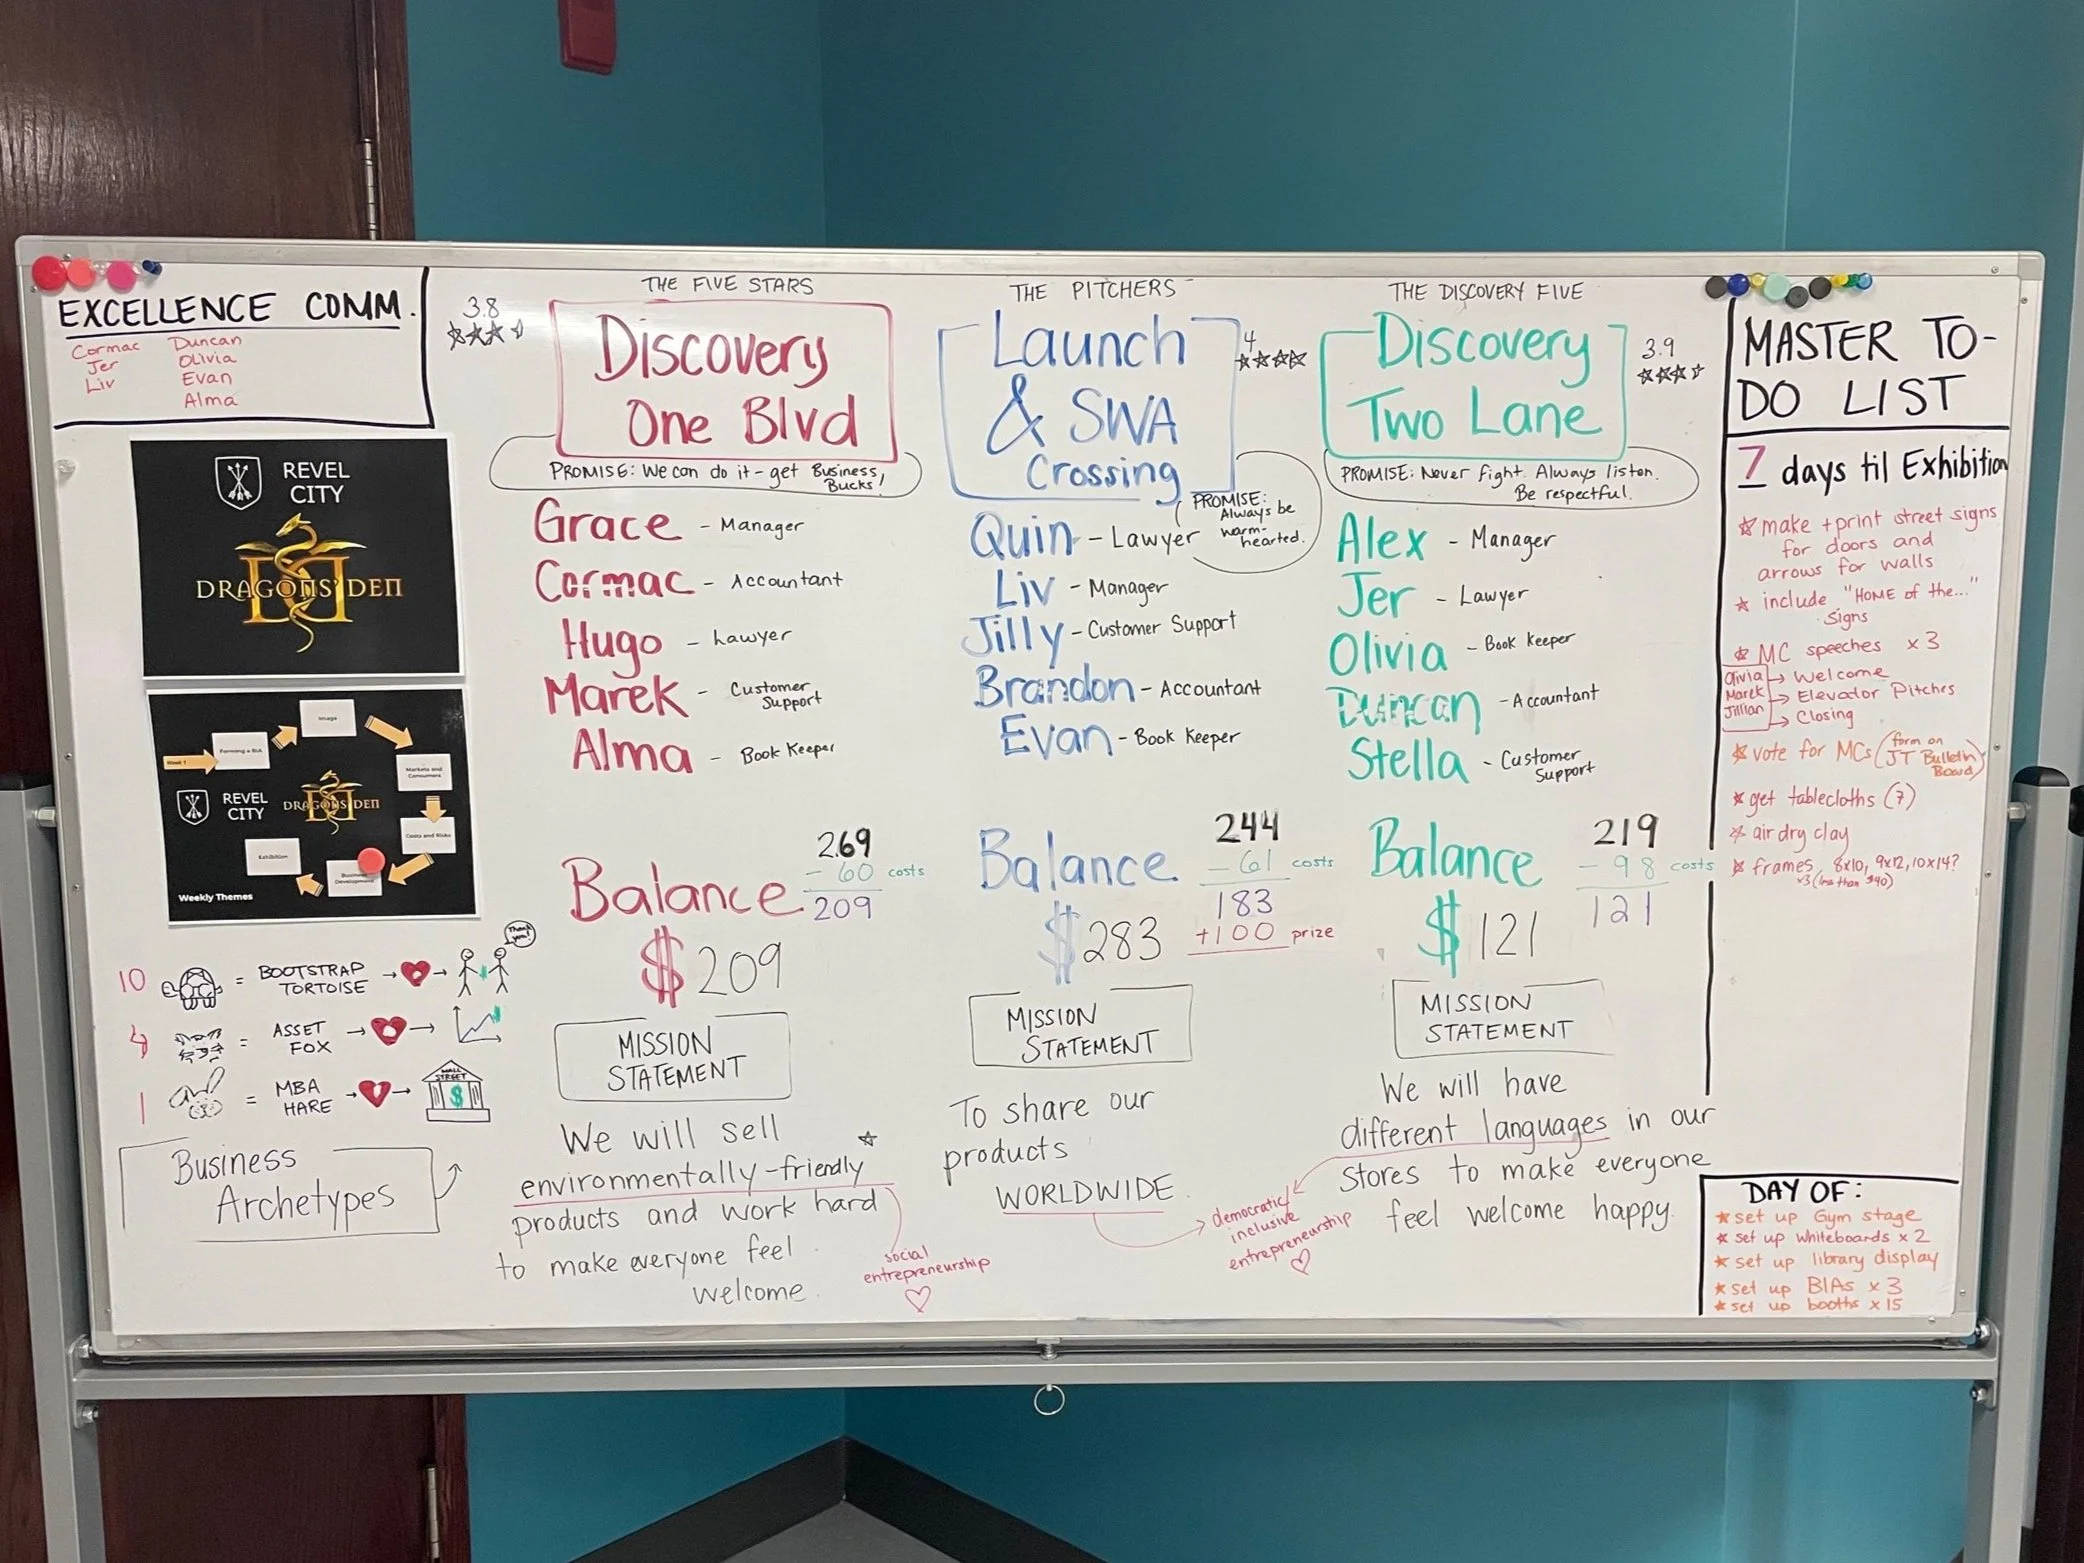 EXCELLENCE COMM.
Cormac
Jer
Liv
Duncan
Olivia
Evan
Alma
REVEL
CITY
DRAGONS' DEN
Week 1
Forming a BIA
Image
Markets and
Consumers
Costs and Risks
Business
Development
Exhibition
REVEL
CITY
DRAGONS' DEN
Weekly Themes
Thank
you!
10 = BOOTSTRAP
TORTOISE
4 = ASSET
FOX
1 = MBA
HARE
WALL
STREET
$
Business
Archetypes
THE FIVE STARS
3.8
Discovery
One Blvd
PROMISE: We can do it - get Business
Bucks!
Grace - Manager
Cormac - Accountant
Hugo - Lawyer
Marek - Customer
Support
Alma - Book Keeper
Balance
$209
269
- 60 costs
209
MISSION
STATEMENT
We will sell
environmentally-friendly
products and work hard
to make everyone feel
welcome.
social
entrepreneurship
THE PITCHERS
4
Launch
& SWA
Crossing
PROMISE:
Always be
warm-
hearted.
Quin - Lawyer
Liv - Manager
Jilly - Customer Support
Brandon - Accountant
Evan - Book Keeper
Balance
$283
244
- 61 costs
183
+100 prize
MISSION
STATEMENT
To share our
products
WORLDWIDE.
democratic/
inclusive
entrepreneurship
THE DISCOVERY FIVE
3.9
Discovery
Two Lane
PROMISE: Never fight. Always listen.
Be respectful.
Alex - Manager
Jer - Lawyer
Olivia - Book Keeper
Duncan - Accountant
Stella - Customer
Support
Balance
$121
219
- 98 costs
121
MISSION
STATEMENT
We will have
different languages in our
stores to make everyone
feel welcome happy.
MASTER TO-
DO LIST
7 days til Exhibition
make + print street signs
for doors and
arrows for walls
include "HOME of the..."
signs
MC speeches x 3
Olivia → Welcome
Marek → Elevator Pitches
Jillian → Closing
vote for MCs (form on
JT Bulletin
Board)
get tablecloths (7)
air dry clay
frames, 8x10, 9x12, 10x14?
x3 (less than $40)
DAY OF:
set up Gym stage
set up whiteboards x 2
set up library display
set up BIAs x 3
set up booths x 15